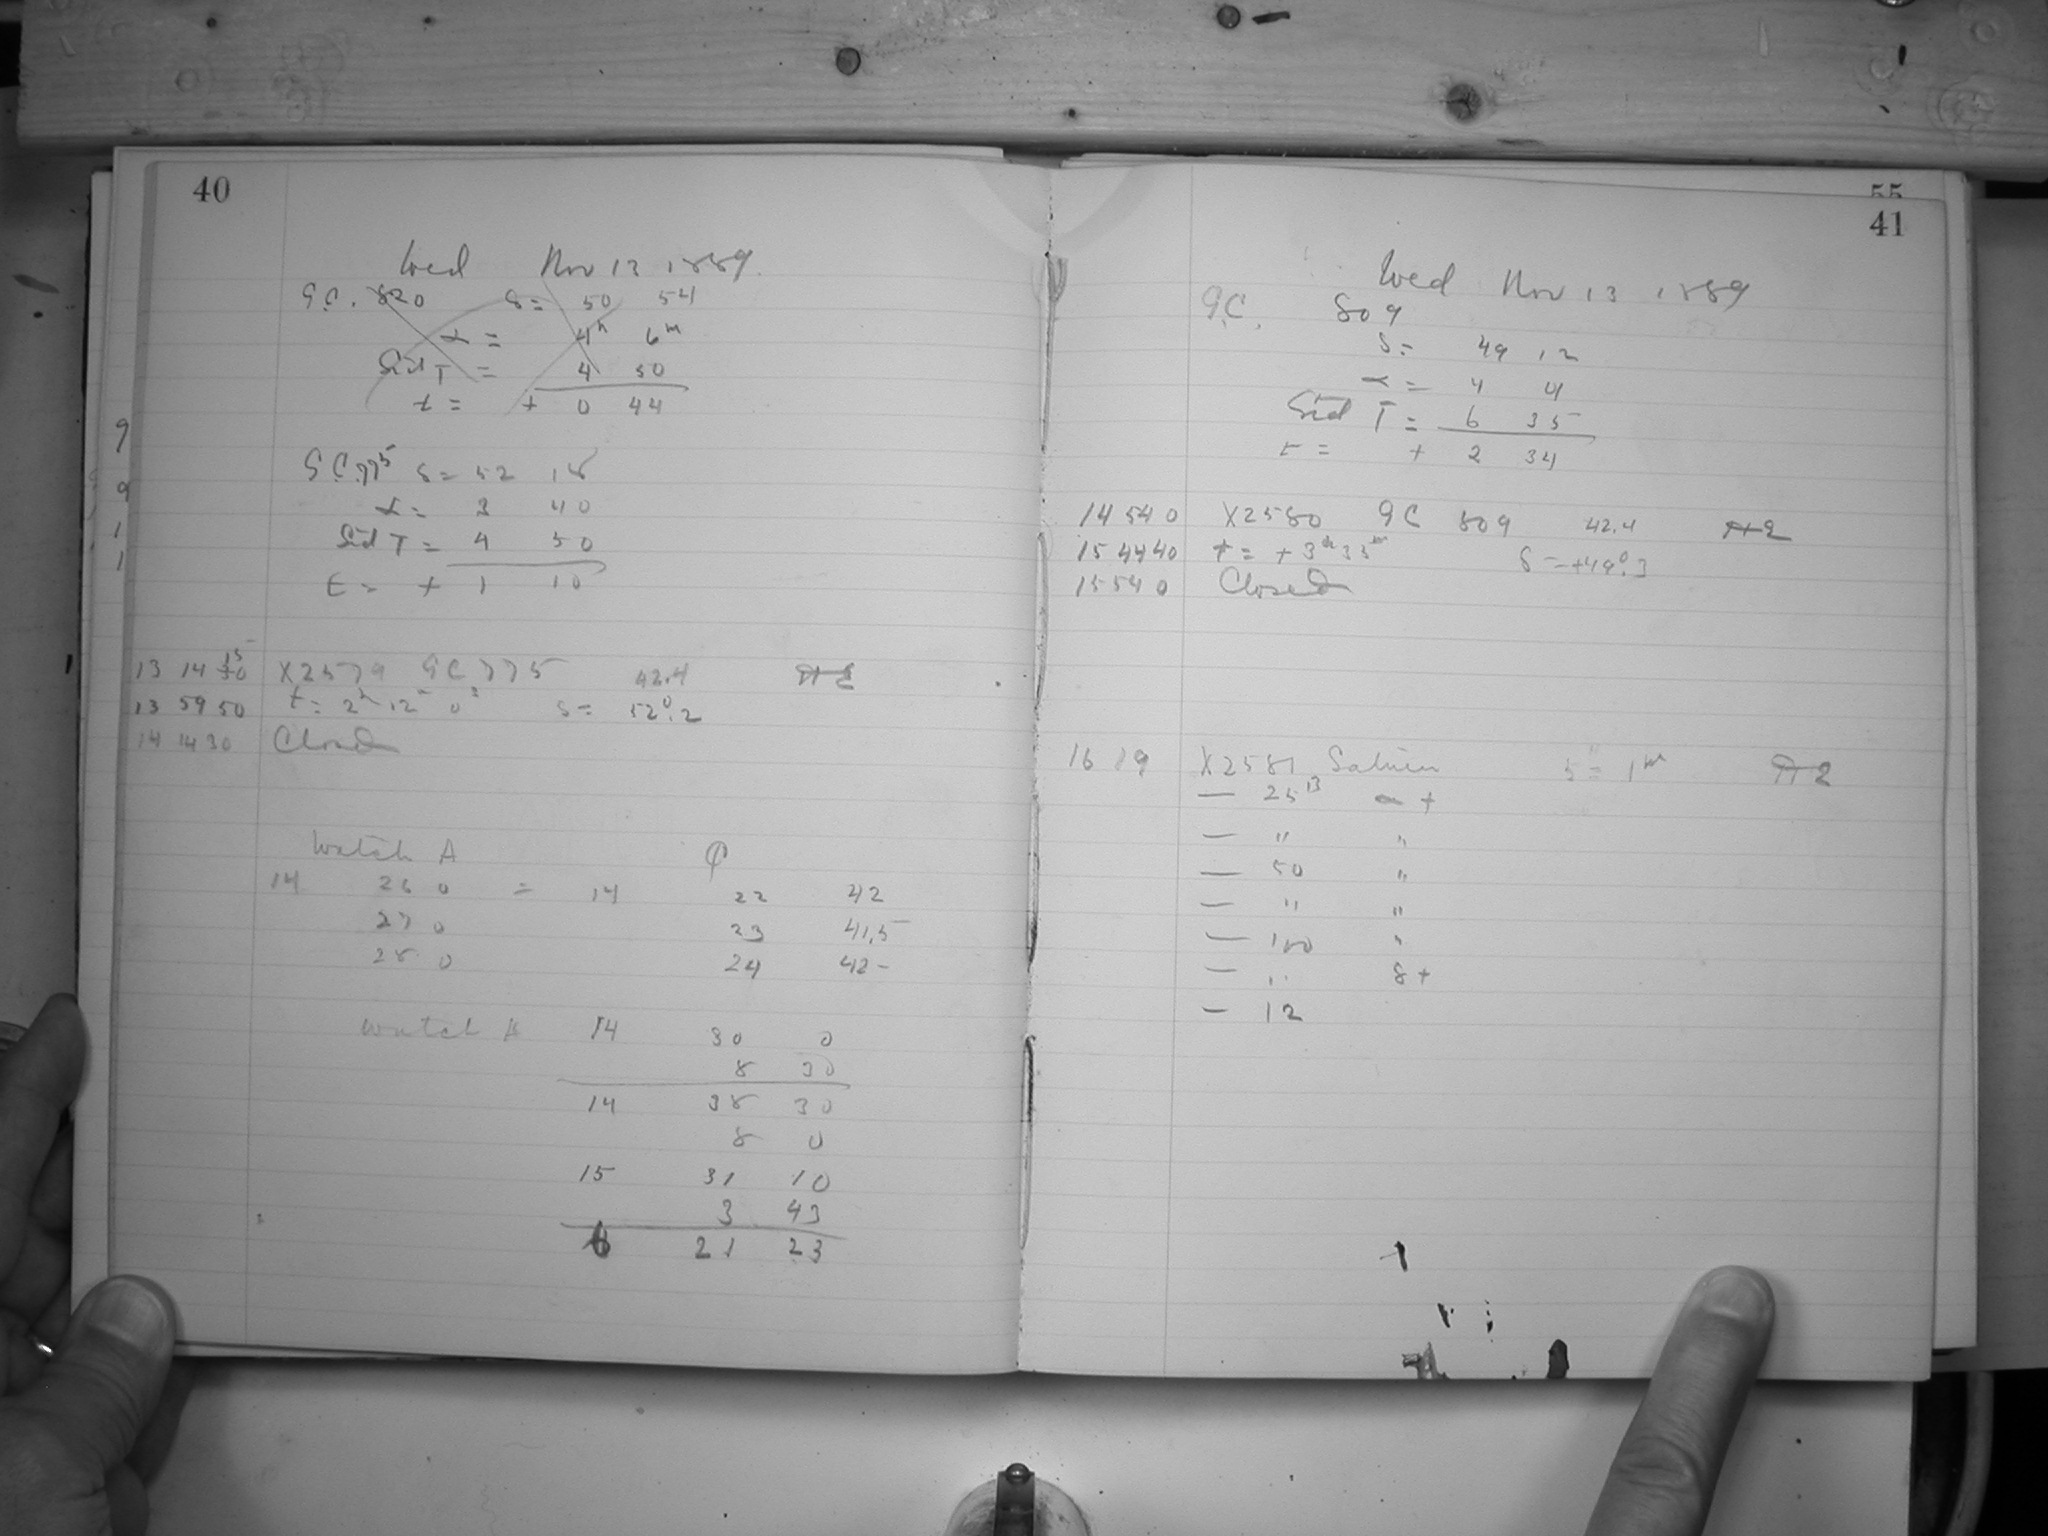 40
Wed Nov 13 1889.
G.C. 820 δ = 50 54
α = 4h 6m
Sid T = 4 50
t = + 0 44
G.C. 775 δ = 52 18
α = 3 40
Sid T = 4 50
t = + 1 10
13 14 30 15 X2579 GC 775 42.4
13 59 50 t = 2h 12m 0s δ = 52°.2
14 14 30 Closed
Watch A
14 26 0 = 14 22 42
27 0 23 41.5
28 0 24 42-
Watch A 14 30 0
8 30
14 38 30
8 0
15 31 10
3 43
6 21 23
9
9
1
1
55
41
Wed Nov 13 1889
G.C. 809
δ = 49 12
α = 4 4
Sid T = 6 35
t = + 2 34
14 54 0 X2580 GC 809 42.4
15 44 40 t = + 3h 35m δ = +49°.3
15 54 0 Closed
16 19 X2581 Saturn S = 1m
— 25 13 a +
— " "
— 50 "
— " "
— 100 "
— " 8 +
— 12